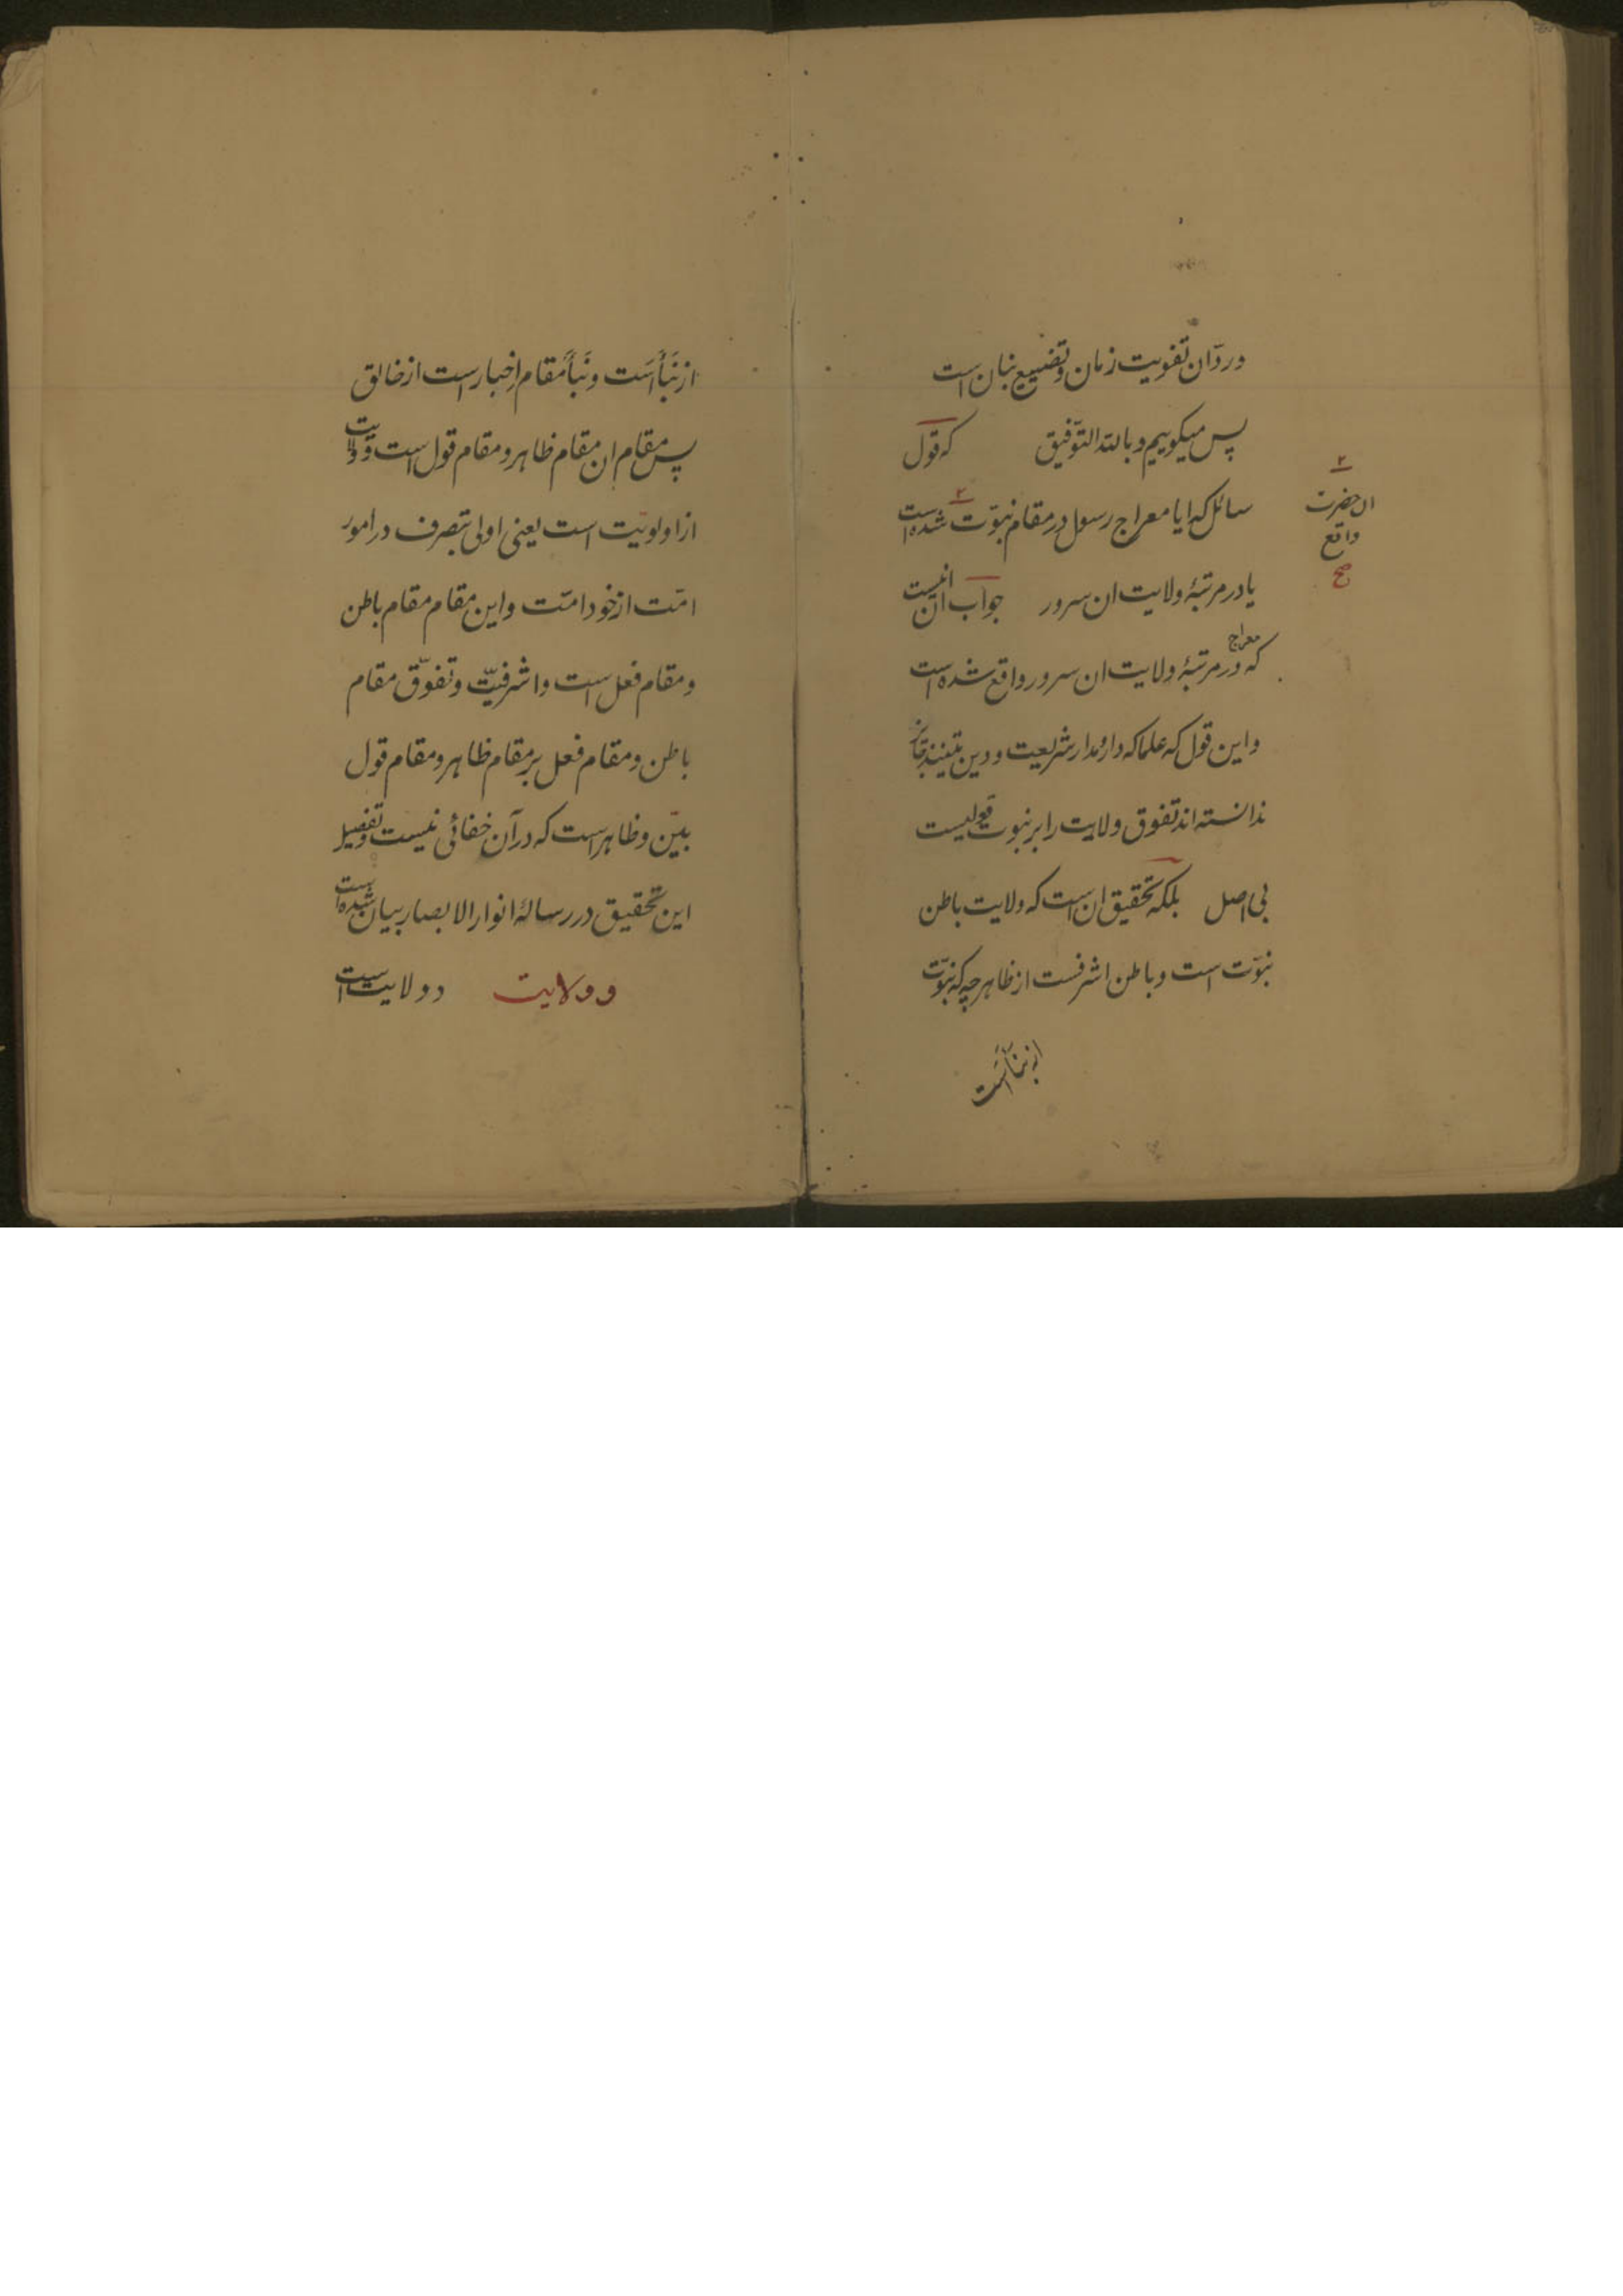 وردّ ان تفویت زمان و تضییع بنان است
پس میکوییم و بالله التوفیق که قول
سائل که ایا معراج رسول در مقام نبوّت شده است
ان حضرت
واقع
صح
یا در مرتبهٔ ولایت ان سرور جواب ان انیست
که معراج در مرتبهٔ ولایت ان سرور واقع شده است
و این قول که علما که دار و مدار شریعت و دین متینند جائز
ندانسته اند تفوق ولایت را بر نبوت قولیست
بی اصل بلکه تحقیق ان است که ولایت باطن
نبوّت است و باطن اشرفست از ظاهر چه که نبوّت
از نبأ است
از نَبَأ است و نَبَأ مقام اِخبار است از خالق
پس مقام ان مقام ظاهر و مقام قول است و ولایت
از اولویّت است یعنی اولی بتصرف در امور
امّت از خود امّت و این مقام مقام باطن
و مقام فعل است و اشرفیّت و تفوّق مقام
باطن و مقام فعل بر مقام ظاهر و مقام قول
بیّن و ظاهر است که در آن خفائی نیست و تفصیل
این تحقیق در رسالهٔ انوار الابصار بیان شده است
و ولایت دو ولایت است